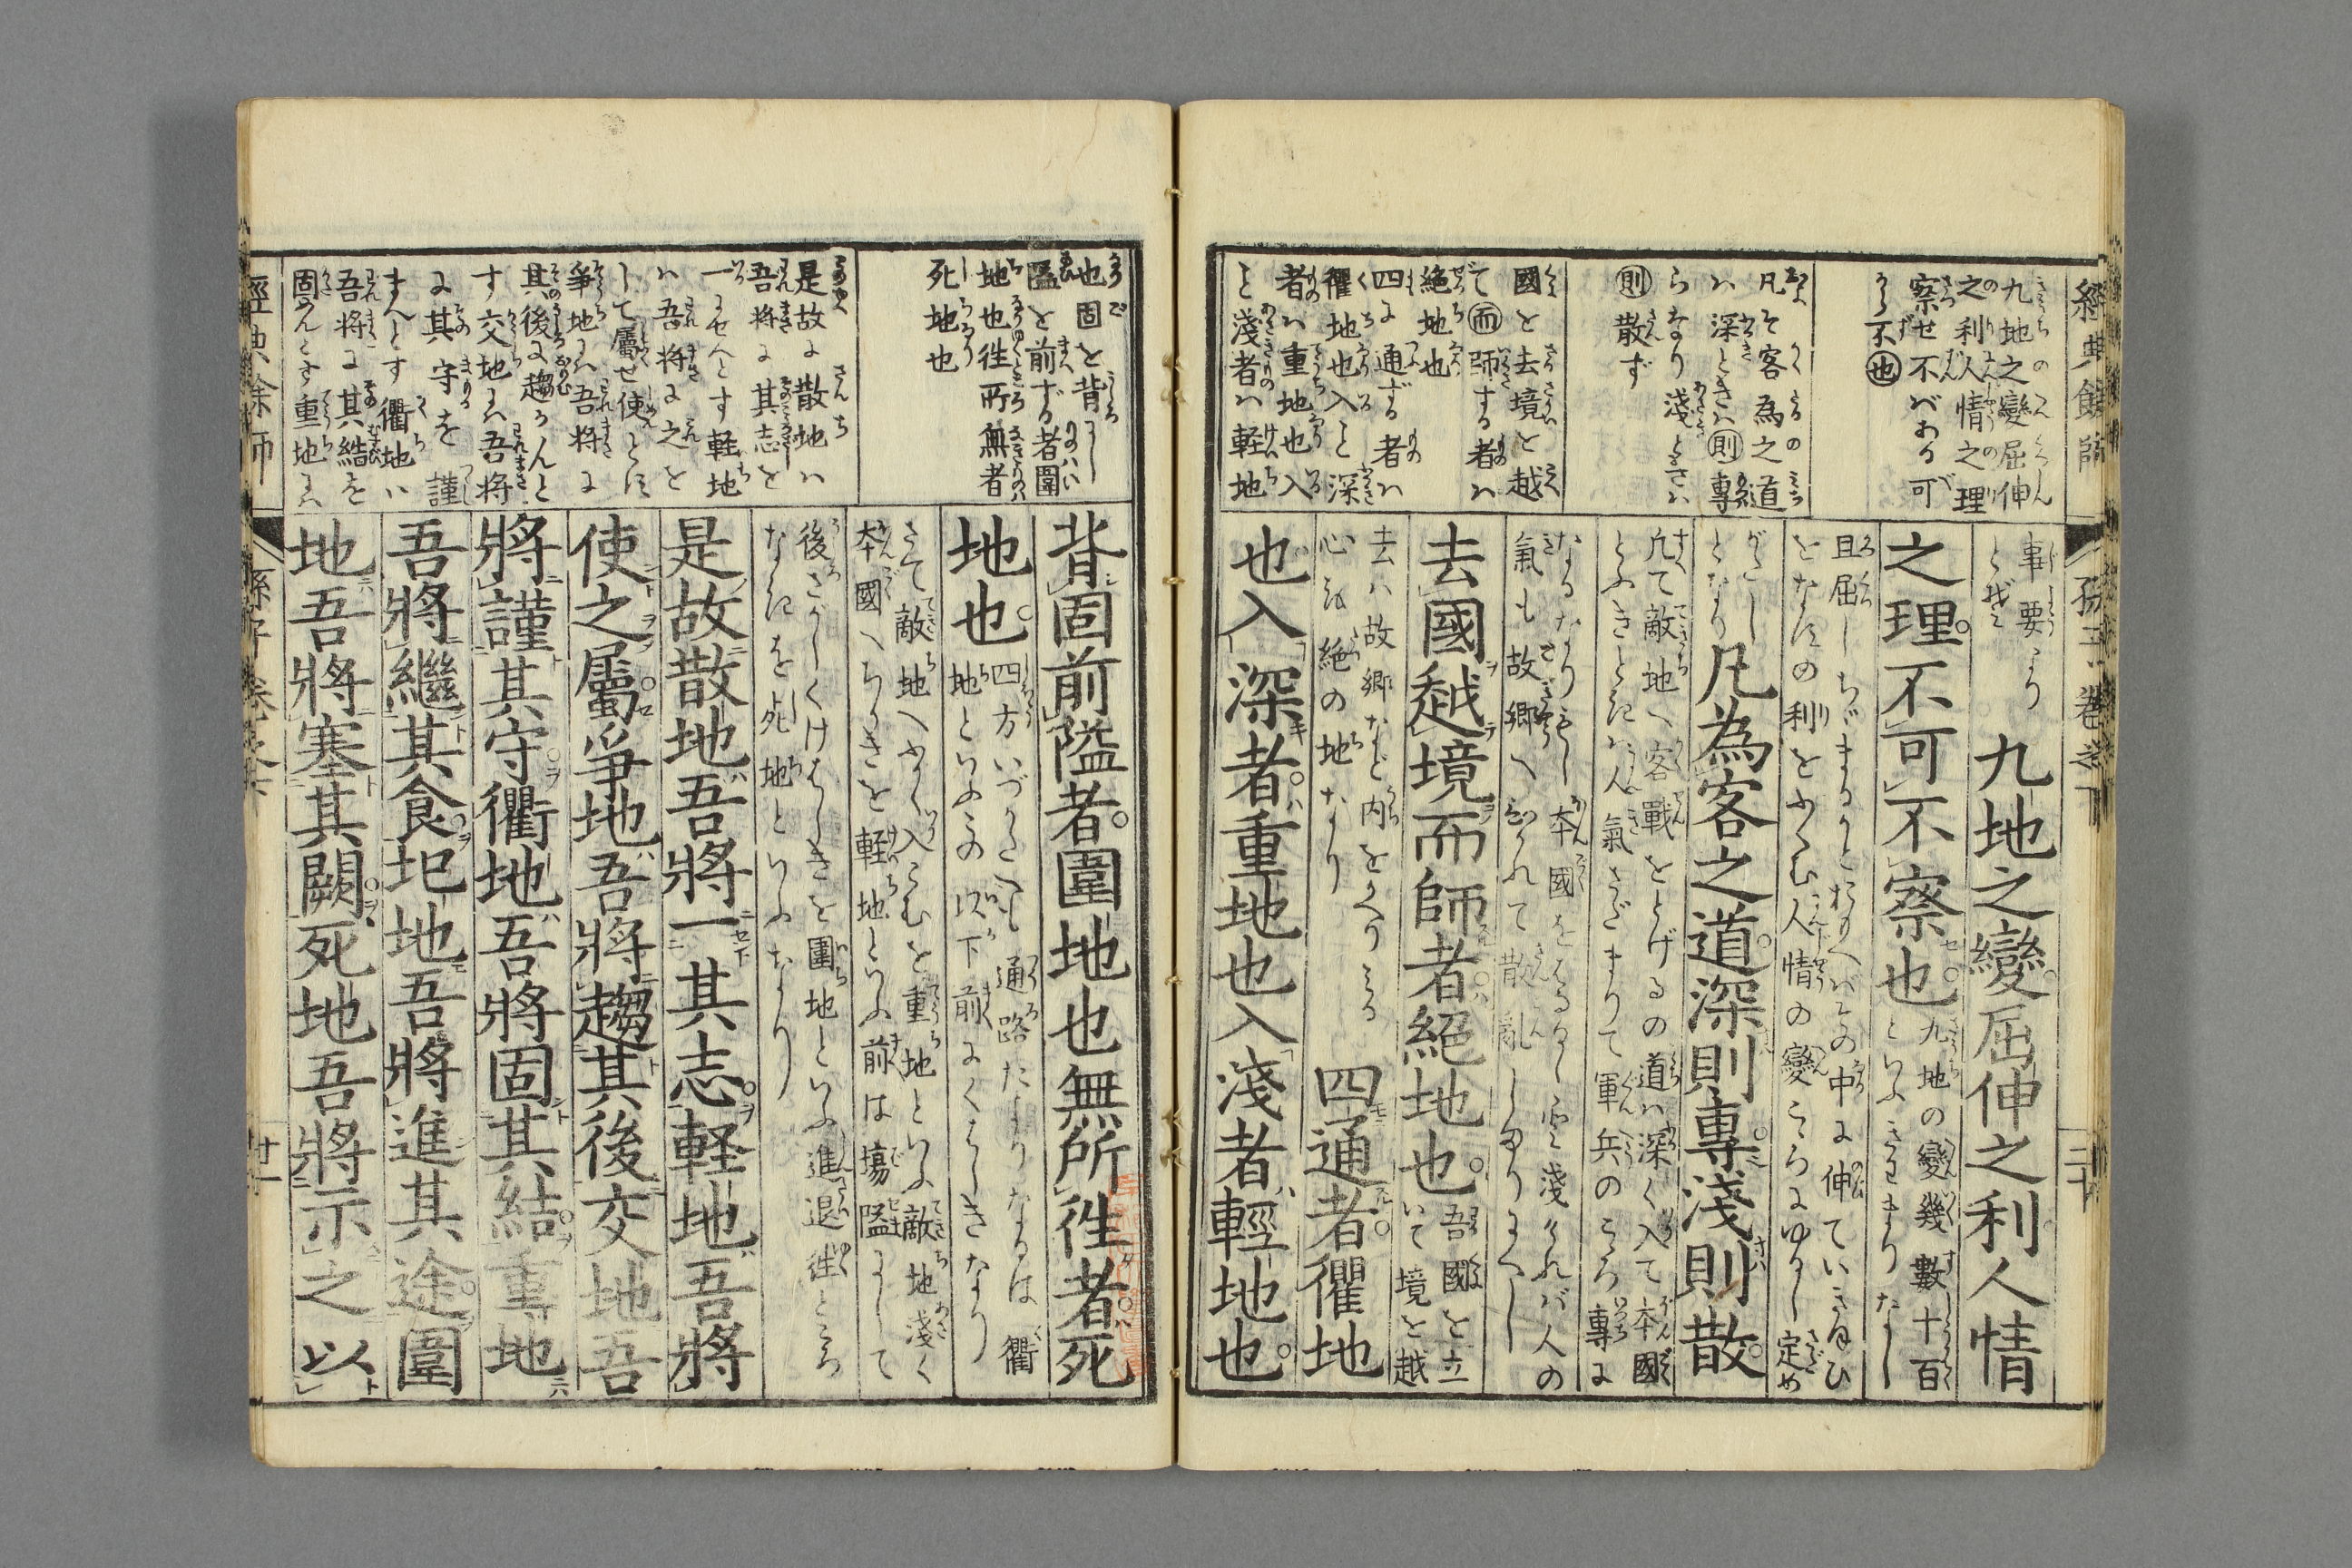 經典餘師
孫子 卷之下
二十
九地之變屈伸
之利人情之理
察せ不バある可
から不也
凡そ客為之道
ハ深ときハ則專
らなり淺ときハ
則散ず
國を去境を越
て而師する者ハ
絶地也
四に通ずる者ハ
衢地也入こと深
者ハ重地也入
こと淺者ハ軽地
事要なり
九地之變屈伸之利人情
之理不可不察也
九地の變幾數十百
といふきはまりなし
且屈しちゞまるかとおもへバその中に伸ていきほひ
をなすの利をふくむ人情の變こゝろにゆるし定め
がたし
となり
凡為客之道深則專淺則散
凡て敵地へ客戰をとげるの道ハ深く入て本國
とふきときハ人氣さだまりて軍兵のこゝろ專に
なるなり もし本國をはなるゝ事淺ければ人の
氣も故郷へひかれて散亂しやすし
去國越境而師者絶地也
吾國を立
いて境を越
去ハ故郷など内をかへりみる
心を絶の地なり
四通者衢地
也入深者重地也入淺者輕地也
也固を背にし
隘を前ずる者圍
地也徃所無者
死地也
是故に散地ハ
吾将に其志を
一にせんとす軽地
ハ吾将に之を
して屬せ使とす
爭地にハ吾将に
其後に趨かんと
す交地にハ吾将
に其守を謹
まんとす衢地ハ
吾将に其結を
固めんとす重地にハ
背固前隘者圍地也無所徃者死
地也
四方いづかたへも通路たよりなるは衢
地といふこの以下前にくはしきなり
さて敵地へふかく入こむを重地といふ敵地淺く
本國へちかきを軽地といふ前は塲隘にして
後さがしくけはしきを圍地といふ進退徃ところ
なきを死地といふなり
是故散地吾將一其志軽地吾將
使之屬爭地吾將趨其後交地吾
將謹其守衢地吾將固其結重地
吾將繼其食圯地吾將進其途圍
地吾將塞其闕死地吾將示之以
經典余師
孫子 卷之下
廿一